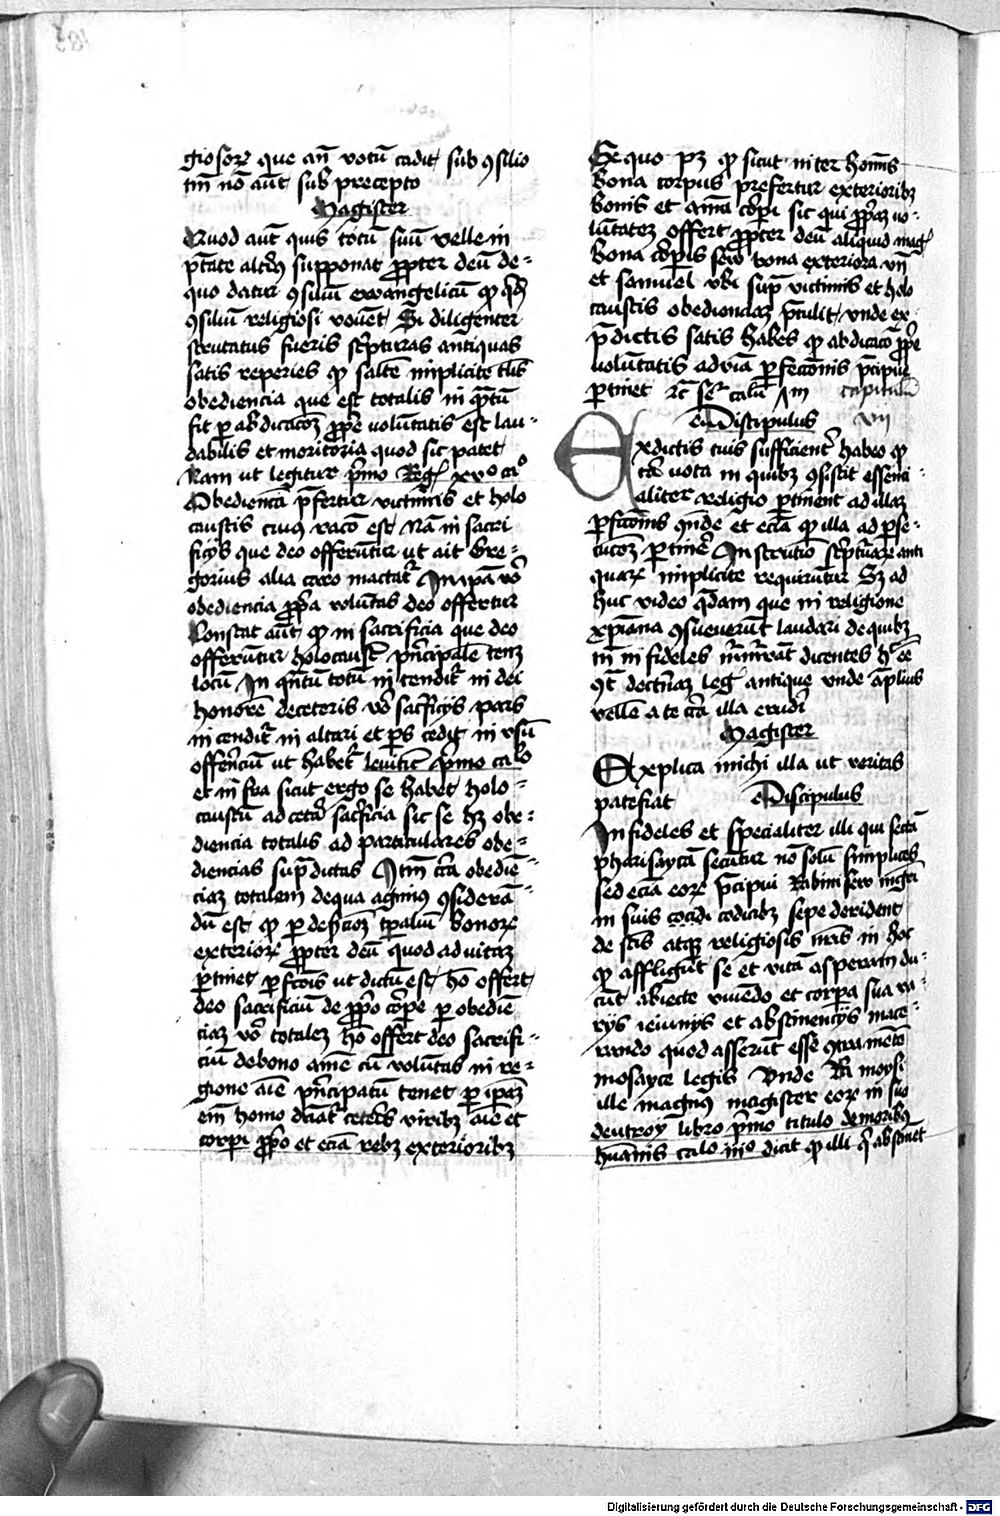 giosorꝝ que an̄ votū cadit sub ꝯsilio
tm̄ nō aūt sub precepto
Magister
Quod aūt quis totū suū velle in
ptāte altiꝰ supponat ꝓpter deū de⸗
quo datur ꝯsiliū ewangelicū ꝙ
ꝯsiliū religiosi vouēt Si diligenter
scrutatus fueris sc̄pturas antiquas
satis reperies ꝙ saltē implicite
obediencia que est totalis in qn̄tū
fit ꝑ abdicacōꝫ ꝓpe voluntatis est lau⸗
dabilis et meritoria quod sic patet
Nam ut legitur pͥmo Reg xvͦ caͦ
Obediencia p̄fertur victimis et holo
caustis cuius racō est Nā in sacri
ficijs que deo offeruntur ut ait Gre⸗
gorius alia caro mactatᷣ In ipā vͦ
obediencia ꝓpa voluntas deo offertur
Constat aūt ꝙ in sacrificia que deo
offeruntur holocaustū pn̄cipale tenꝫ
locū In qn̄tū totū in cenditᷣ in dei
honorē de ceteris vͦ sacrificijs pars
in cenditᷣ in altari et ps̄ cedit in vsū
offerenciū ut habetᷣ leuitic pͥmo caͦ
et in fra sicut ergo se habet holo⸗
caustū ad cetera sacrificia sic se hꝫ obe⸗
diencia totalis ad particulares obe⸗
diencias supͣ dictas Itm̄ circa obediē⸗
ciaꝫ totalem de qua agimꝰ ꝯsiderā⸗
dū est ꝙ ꝑ tp̄aliū bonorꝝ
exteriorꝝ ꝓpter deū quod ad vitaꝫ
ꝑtinet ꝑfcōis ut dictū est hō offert
deo sacrificiū de ꝓpͦ corpe ꝑ obediē
ciaꝫ vͦ totaleꝫ hō offert deo sacrifi⸗
ciū de bono anime cū voluntas in re⸗
gione aīe pn̄cipatū tenet ꝑ ipaꝫ
eīm homo dn̄at ceteris viribꝫ aīe et
corpi ꝓpͦ et eciā rebꝫ exterioribꝫ
Ex quo pꝫ ꝙ sicut inter homīs
bona corpus prefertur exterioribꝫ
bonis et anīa corpi sic qui ꝓpaꝫ vo⸗
luntateꝫ offert ꝓpter deū aliquid
bona corpis seu bona exteriora vn̄
et Samuel vbi supͣ victimis et holo
caustis obedienciaꝫ p̄tulit vnde ex
p̄dictis satis habes ꝙ abdicacō ꝓpe
voluntatis ad viā ꝑfeccōnis p̄cipue
ꝑtinet capitulū
Discipulus vii
Ex dictis tuis sufficientᷣ habeo ꝙ
vota in quibꝫ ꝯsistit essenci⸗
aliter religio ꝑtinent ad illaꝫ
ꝑfcōnis et eciā ꝙ illa ad ꝑse⸗
cucōꝫ ꝑtinēt In scrutinio sc̄pturarꝝ anti
quarꝝ implicite requiruntur Sꝫ ad
huc video qdam que in religione
xp̄iana ꝯsueuerūt laudari de quibꝫ
tn̄ in fideles dicentes hͦ ēe
ꝯtͣ doctrinaꝫ leg antique vnde āplius
vellē a te circa illa erudiri
Magister
Explica michi illa ut veritas
patefiat Discipulus
In fideles et specialiter illi qui sectā
pharisaycā secūtur nō solū simplices
sed eciā eorꝝ p̄cipui Rabini seu mgri
in suis codicibꝫ sepe derident
de istis atqꝫ religiosis nr̄is in hoc
ꝙ affligūt se et vitā asperam du⸗
cūt abiecte viuēdo et corpa sua va⸗
rijs ieiunijs et abstinencijs mace⸗
rando quod asserūt esse ꝯtra mente
mosayce legis Vnde Rͥ moysi
ille magnꝰ magister eorꝝ in suo
deutroꝫ libro pͥmo titulo de moribꝰ
humanis caͦ iijͦ dicit ꝙ illi qͥ abstinet